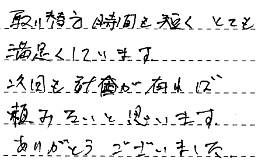 取り替え時間も短く とても
満足しています
次回も計画が有れば
頼みたいと思います
ありがとうございました